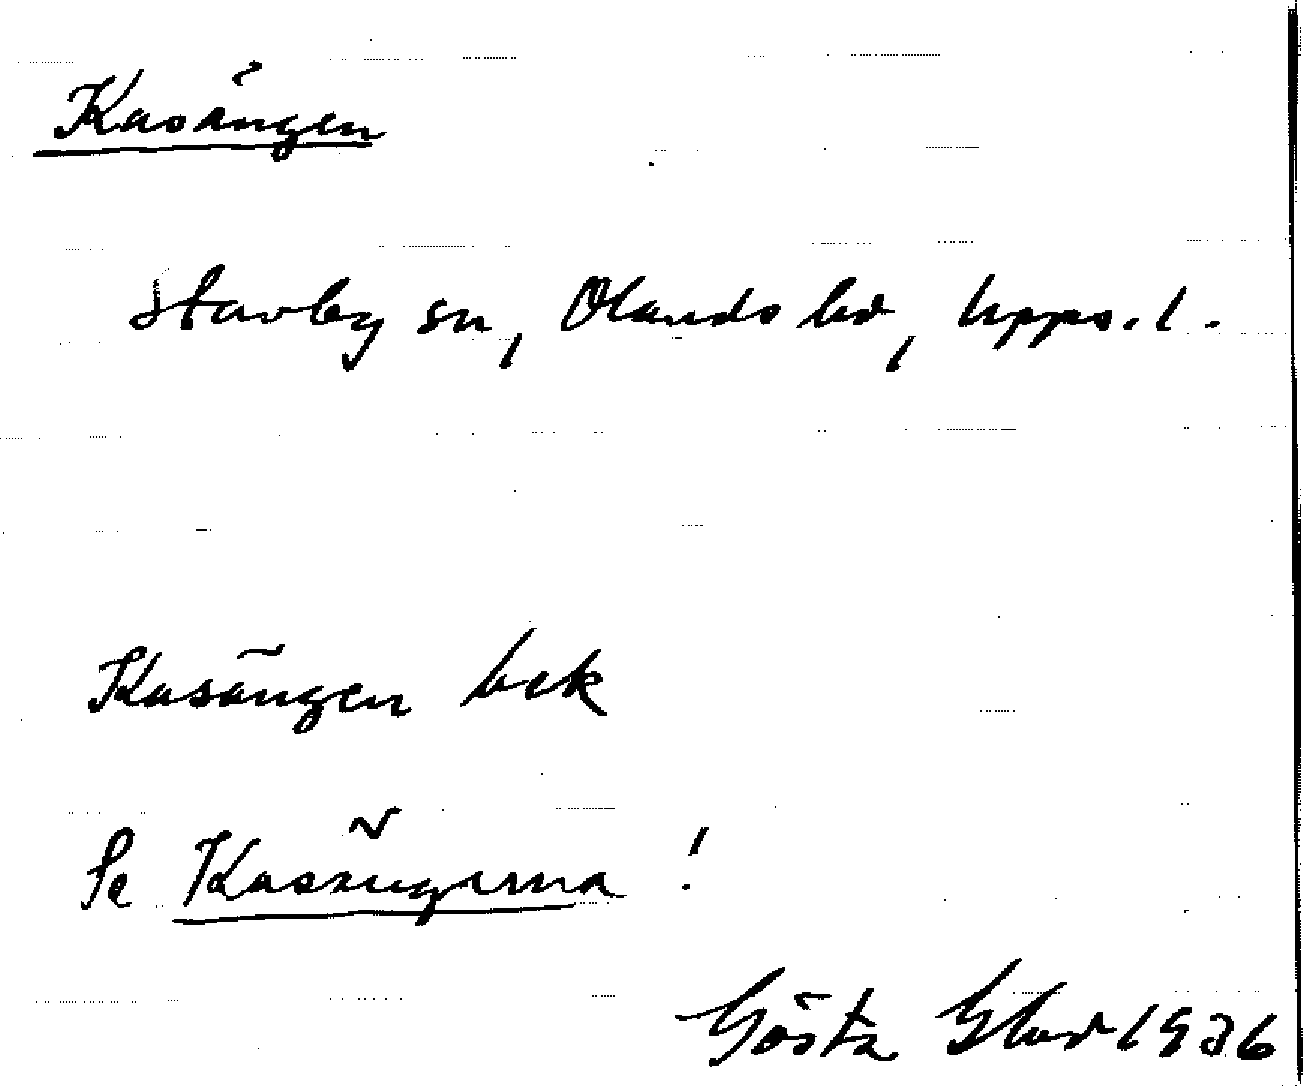 Kasängen
Stavby sn, Olands hd, Upps. l.
Kasängen bek
Se Kasängarna !
Gösta Glad 1936